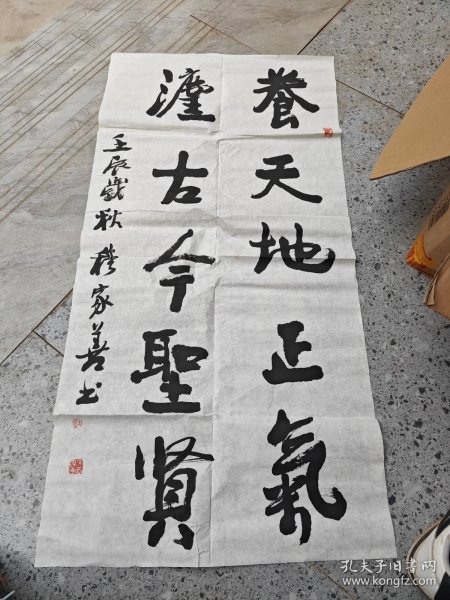 養天地正氣
古今聖賢
壬辰歲秋 穆家善书
孔夫子旧书网
www.kongfz.com